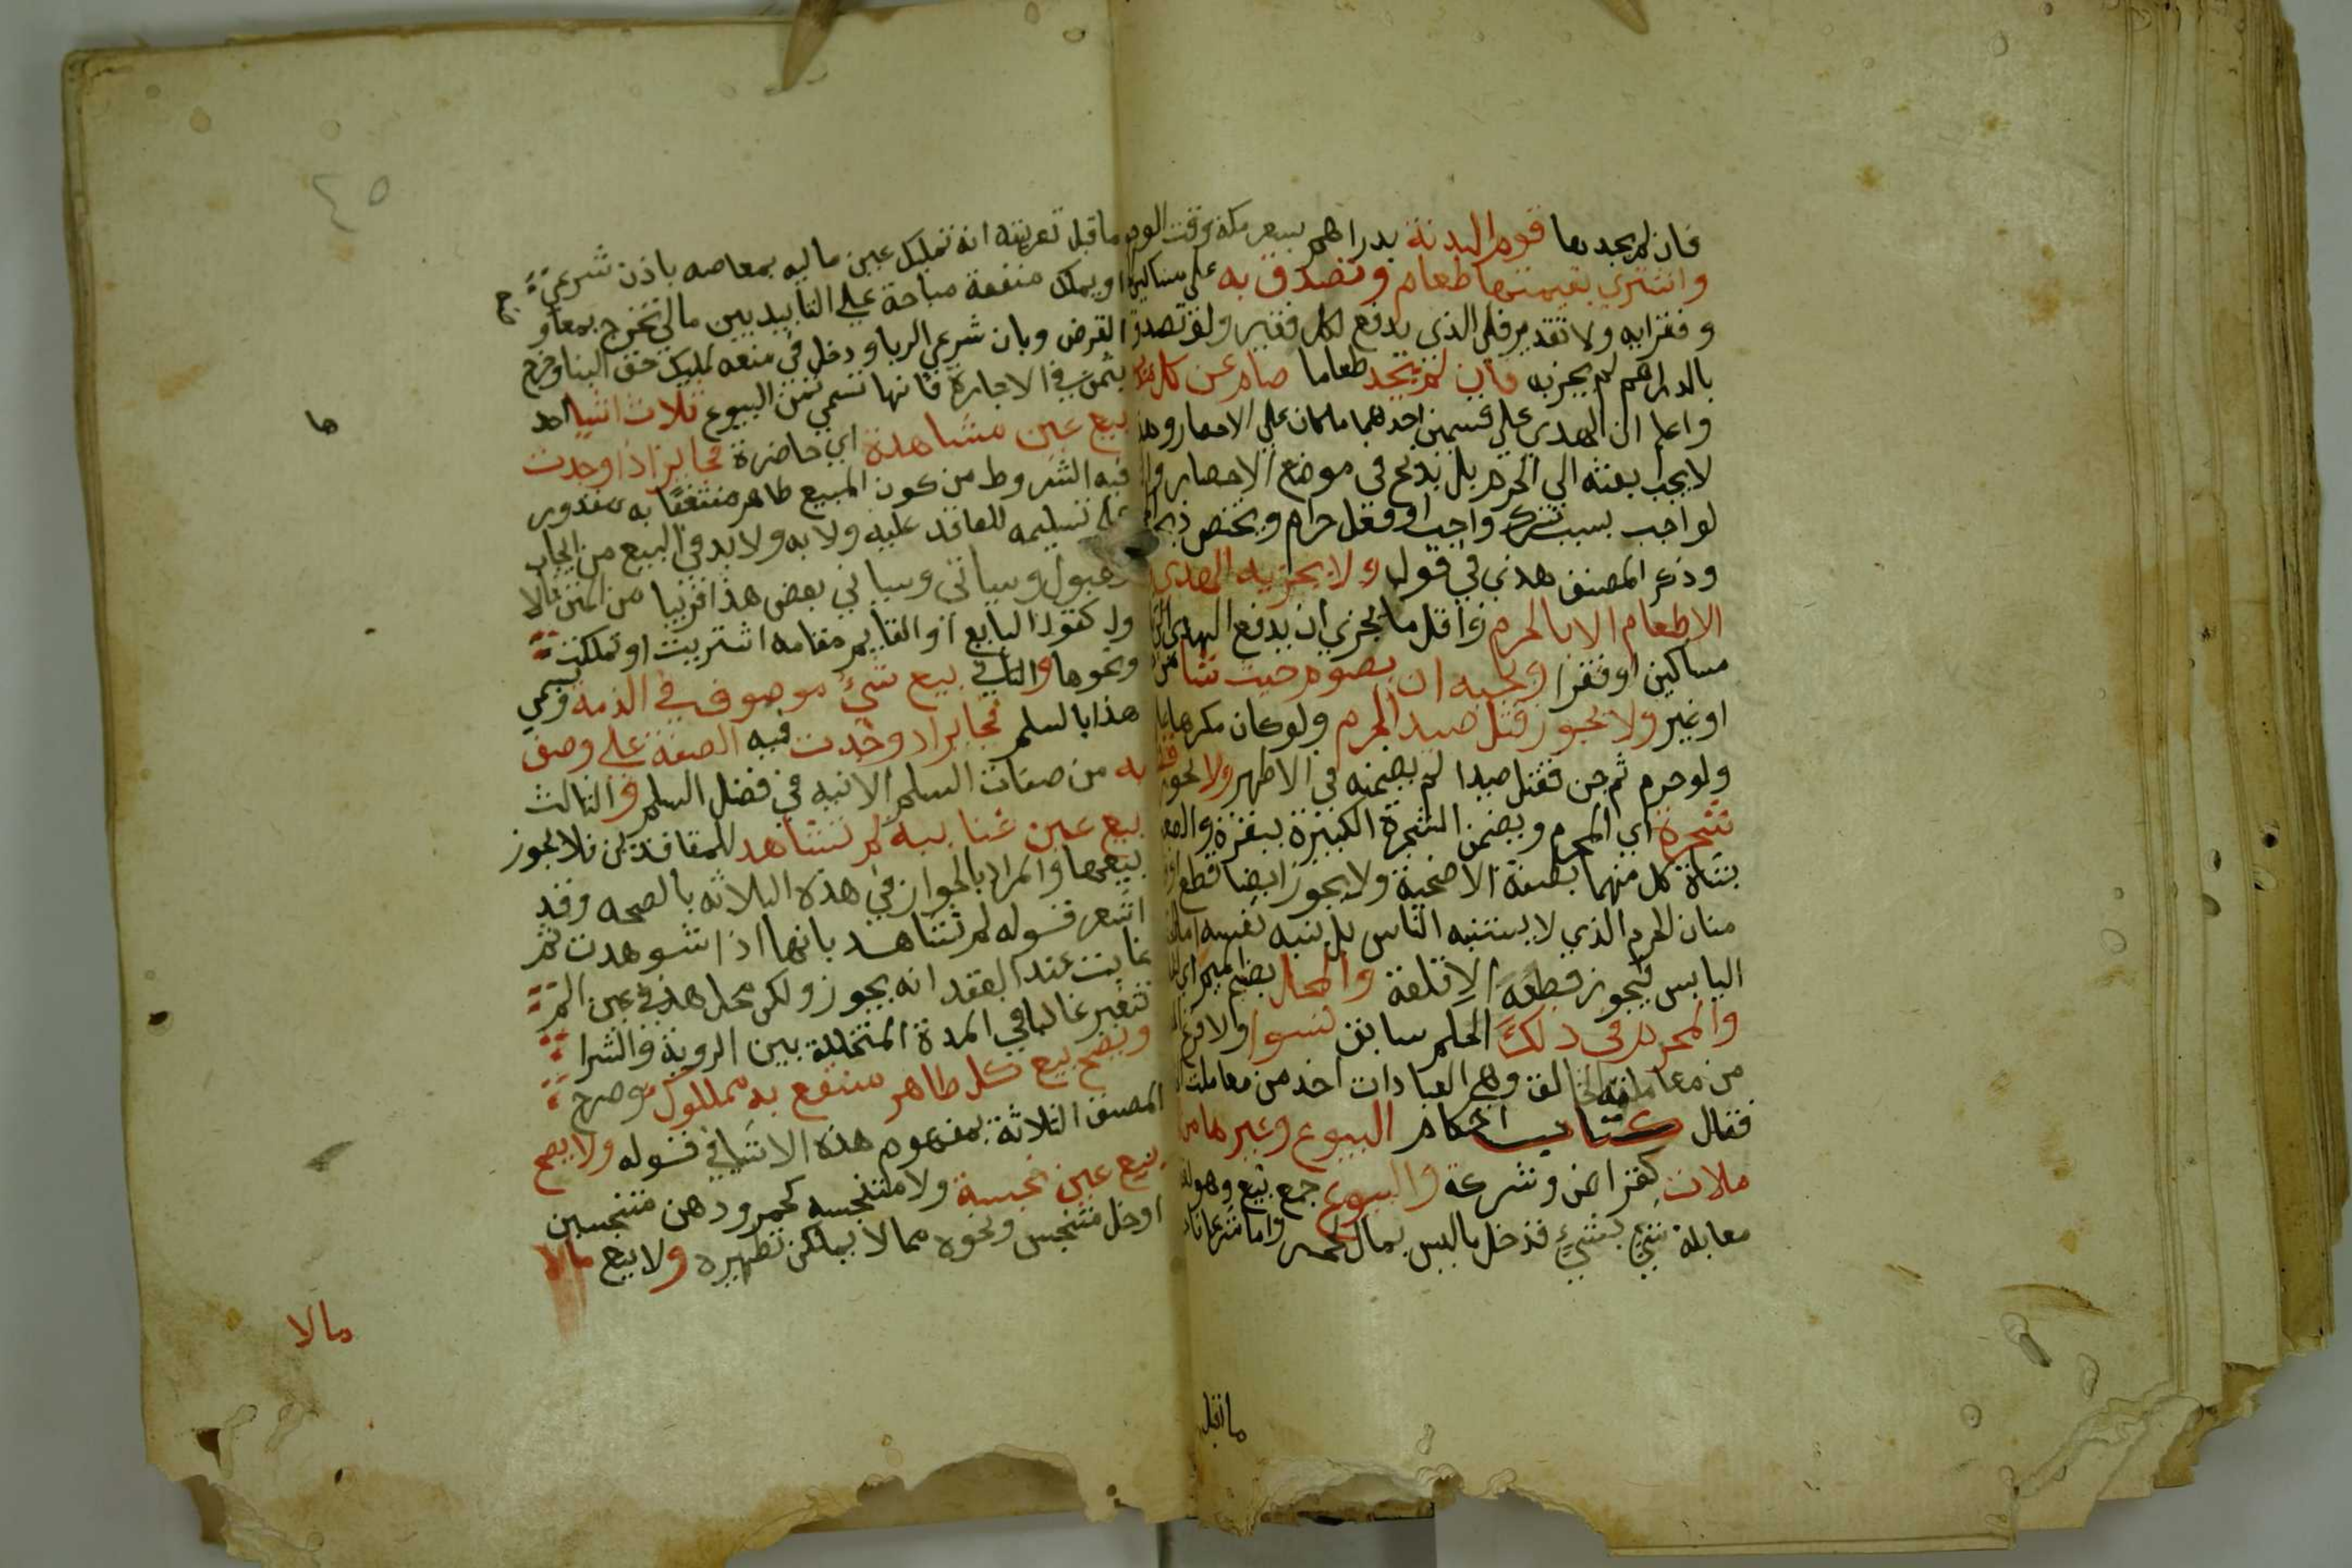 فان لم يجدها قوم البدنة بدراهم بسعر مكة وقت الوجوب
واشتري بقيمتها طعام وتصدق به علي مساكين
وفقرايه ولا تقدير في الذي يدفع لكل فقير ولو تصدق
بالدراهم لم يجزيه فان لم يجد طعاما صام عن كل مد
واعلم ان الهدي علي قسمين احدهما ما كان علي الاحصار وهذا
لا يجب بعثه الي الحرم بل يذبح في موضع الاحصار
لواجب بسبب ترك واجب او فعل حرام ويختص ذبحه
وذكر المصنف هدي في قوله ولا يجزيه الهدي
الاطعام الا بالحرم واقل ما يجزي ان يدفع الهدي الي
مساكين او فقرا ويجيه ان يصوم حيث شا من
او غير ولا يجوز قتل صيد الحرم ولو كان مكرها
ولو حرم ثم جن فقتل صيدا لم يضمنه في الاظهر ولا يجوز قطع
شجرة اي الحرم ويضمن الشجرة الكبيرة ببقرة
بشاة كل منهما بصفة الاضحية ولا يجوز ايضا قطع
منان الحرم الذي لا يستنبه الناس بل ينبه نفسه اما
اليابس فيجوز قطعه الا قلعه والمحل بضم الميم اي
والمحرم في ذلك الحكم سابق لسوا ولا فرغ
من معاملة الخالق وهي العبادات اخذ من معاملت
فقال كتاب احكام البيوع وغيرها من
ملات كقراض وشرعة والبيوع جمع بيع وهو لغة
معابلة شي بشي فدخل ما ليس بمال كخمر واما شرعا
ماقبل
٤٥
ماقبل تعريفه انه تمليك عين ماليه بمعاصه باذن شرعي
او يملك منفعة مباحة علي التابيد بين مالي تخرج بمعاو
القرض وبان شرعي الربا ودخل في منعه تمليك حق البنا وخرج
بثمن في الاجارة فانها تسمي ثمن البيوع ثلاث اشيا احد
ها
بيع عين مشاهدة اي حاضرة فجايز اذا وجدت
فيه الشروط من كون المبيع طاهر منتفعا به مقدور
علي تسليمه للعاقد عليه ولا به ولا بد في البيع من ايجاب
وقبول وسياتي وسياتي بعض هذا قريبا من
ول كقول البايع او القايم مقامه اشتريت او تملكت
ونحوها والثاني بيع شي موصوف في الذمه ويسمي
هذا بالسلم فجايز اذ وجدت فيه الصفة علي وصف
به من صفات السلم الاتيه في فصل السلم والثالث
بيع عين غايبة لم تشاهد للمتعاقدين فلا يجوز
بيعها والمراد بالجواز في هذه الثلاثه بالصحه وقد
اشعر قوله لم تشاهد بانها اذا شوهدت ثم
غابت عند العقد انه يجوز ولكن محل هذا في عين لم
تتغير غالبا في المدة المتخللة بين الروية والشرا
ويصح بيع كل طاهر منتفع به مملوك وصرح
المصنف الثلاثة بمفهوم هذه الاشيا في قوله ولا يصح
بيع عين نجسة ولا متنجسه كخمر ودهن متنجسين
او خل متنجس ونحوه مما لا يمكن تطهيره ولا بيع مالا
مالا